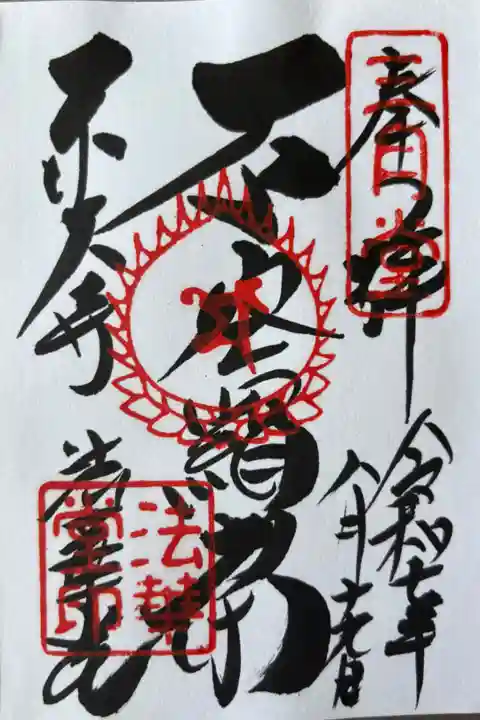 奉拝
三月堂
令和七年
八月
不空羂索
東大寺
法華堂
法華堂印